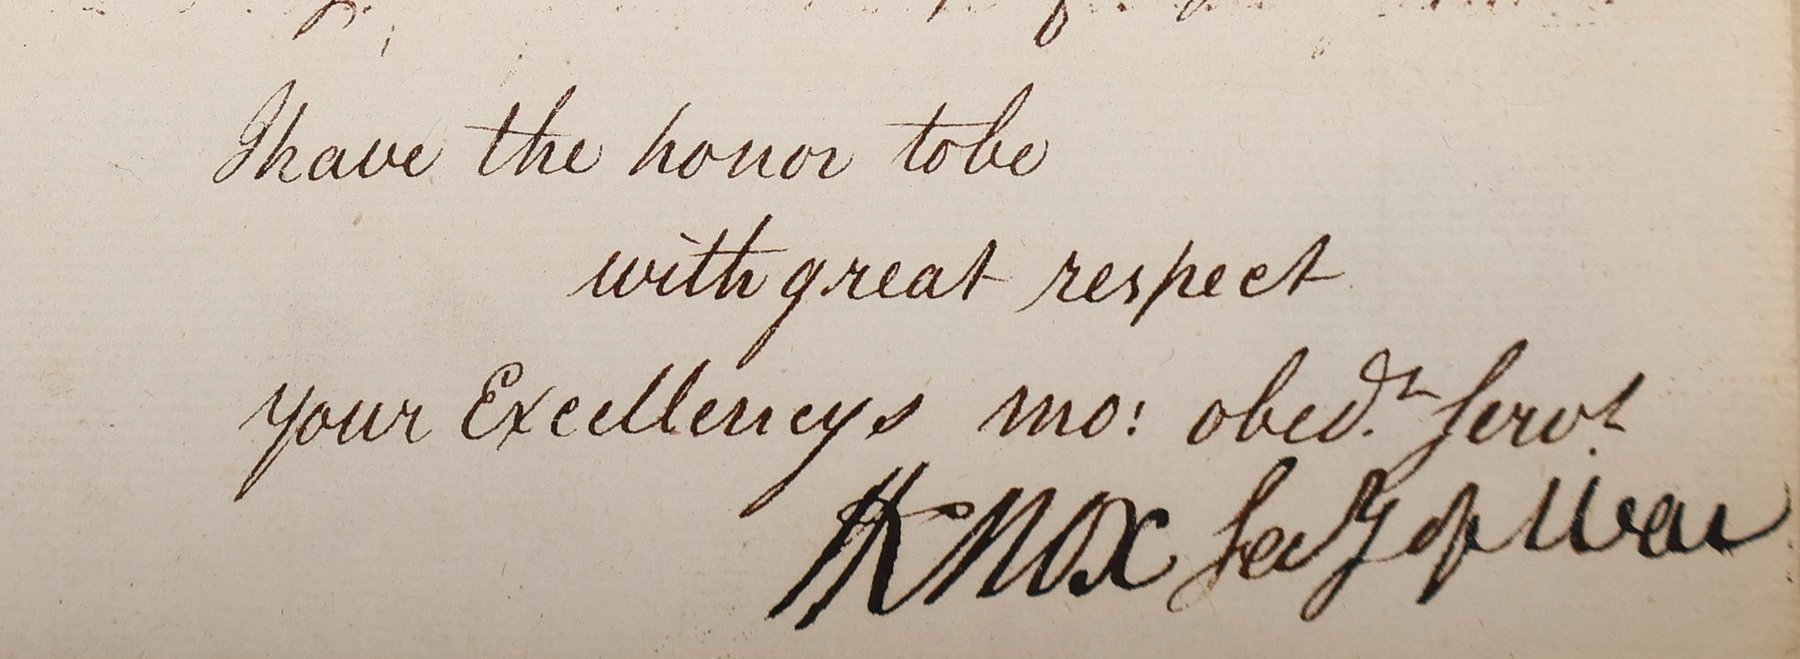 I have the honor to be
with great respect
your Excellencys mo: obed.t Serv.t
HKnox Secy of War